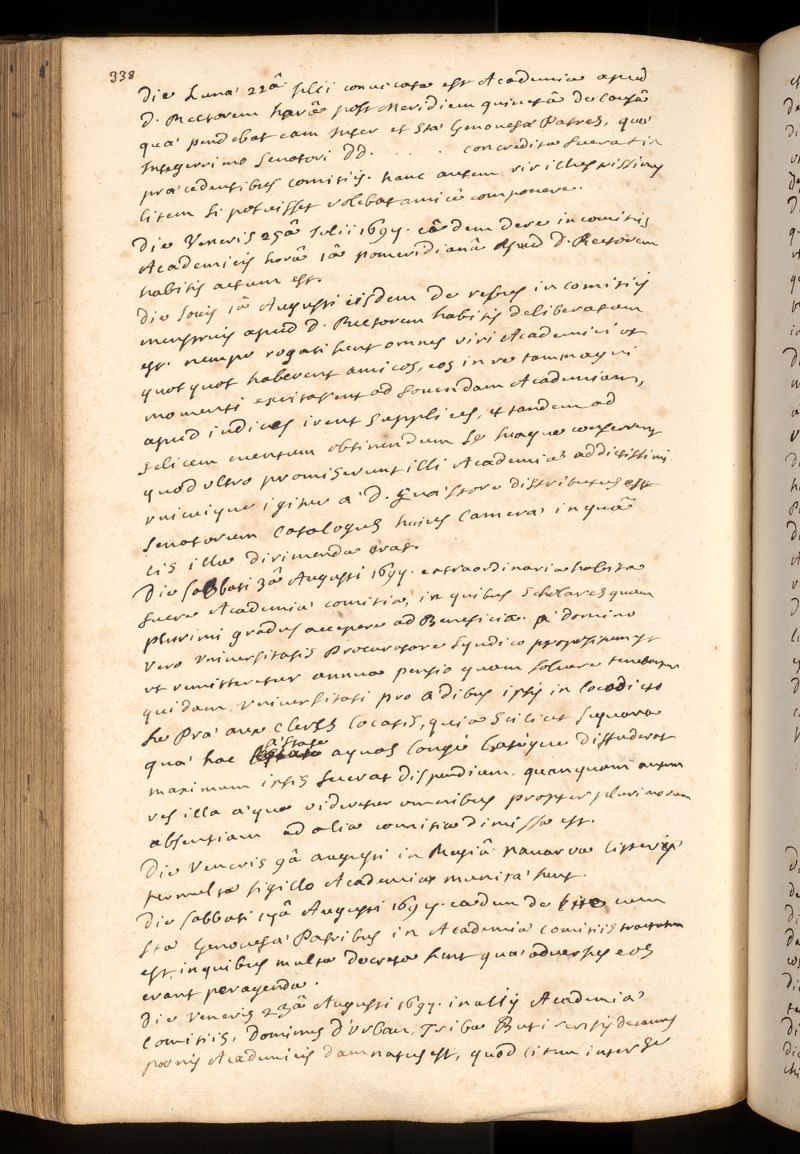 338
Die Lunæ 22â Julii convocata est Academia apud
D. Rectorem horâ post Meridiem quintâ de causâ
quæ pendebat eam inter et Stæ Genovefæ Patres, quæ
integerrimo Senatori DD. . . . . concredita fuerat in
præcedentibus comitiis. hanc autem vir illustrissimus
litem si potuisset volebat amicè componere.
Die Veneris 25â Julii 1697. eâdem de re in comitiis
Academicis horâ 1â pomeridianâ apud D. Rectorem
habitis actum est.
Die Jovis 1â Augusti iisdem de rebus in comitiis
menstruis apud D. Rectorem habitis deliberatum
est. nempe rogati sunt omnes viri Academici ut
quotquot haberent amicos, eos in re tam magni
momenti excitarent ad fovendam Academiam,
apud judices irent supplices, et tandem ad
felicem eventum obtinendum se suaque conferrent
quod ultro promiserunt illi Academiæ addictissimi
unicuique igitur a D. Quæstore distributus est
Senatorum Catalogus huius Cameræ in quâ
lis illa dirimenda erat.
Die Sabbati 3â Augusti 1697. extraordinaria habita
fuere Academiæ comitia, in quibus scholares quam
plurimi gradus accepere ad Beneficia. a domino
vero Universitatis Procuratore Syndico propositum est
ut remitteretur annua pensio quam solvere tenebantur
quidam Universitati pro ædibus ipsis in loco dicto
Le Pré aux Clercs locatis, quia scilicet Sequana
quæ hac æstate aquas longè latèque diffuderat
maximum ipsis fuerat dispendium. quanquam autem
res illa æqua videretur omnibus propter plurimorum
absentiam ad alia comitia dimissa est.
Die Veneris 9â augusti in Regiâ Navarræ litteris
permulta sigillo Academiæ munita sunt.
Die Sabbati 17â Augusti 1697. eadem de lite cum
Stæ Genovefæ Patribus in Academiæ comitiis tractatum
est, in quibus multa decreta sunt quæ adversus eos
erant peragenda.
Die Veneris 23â Augusti 1697. in aliis Academiæ
Comitiis, Dominus D'Urban, Tribæ
pœnis Academicis damnatus est, quod litem inter se